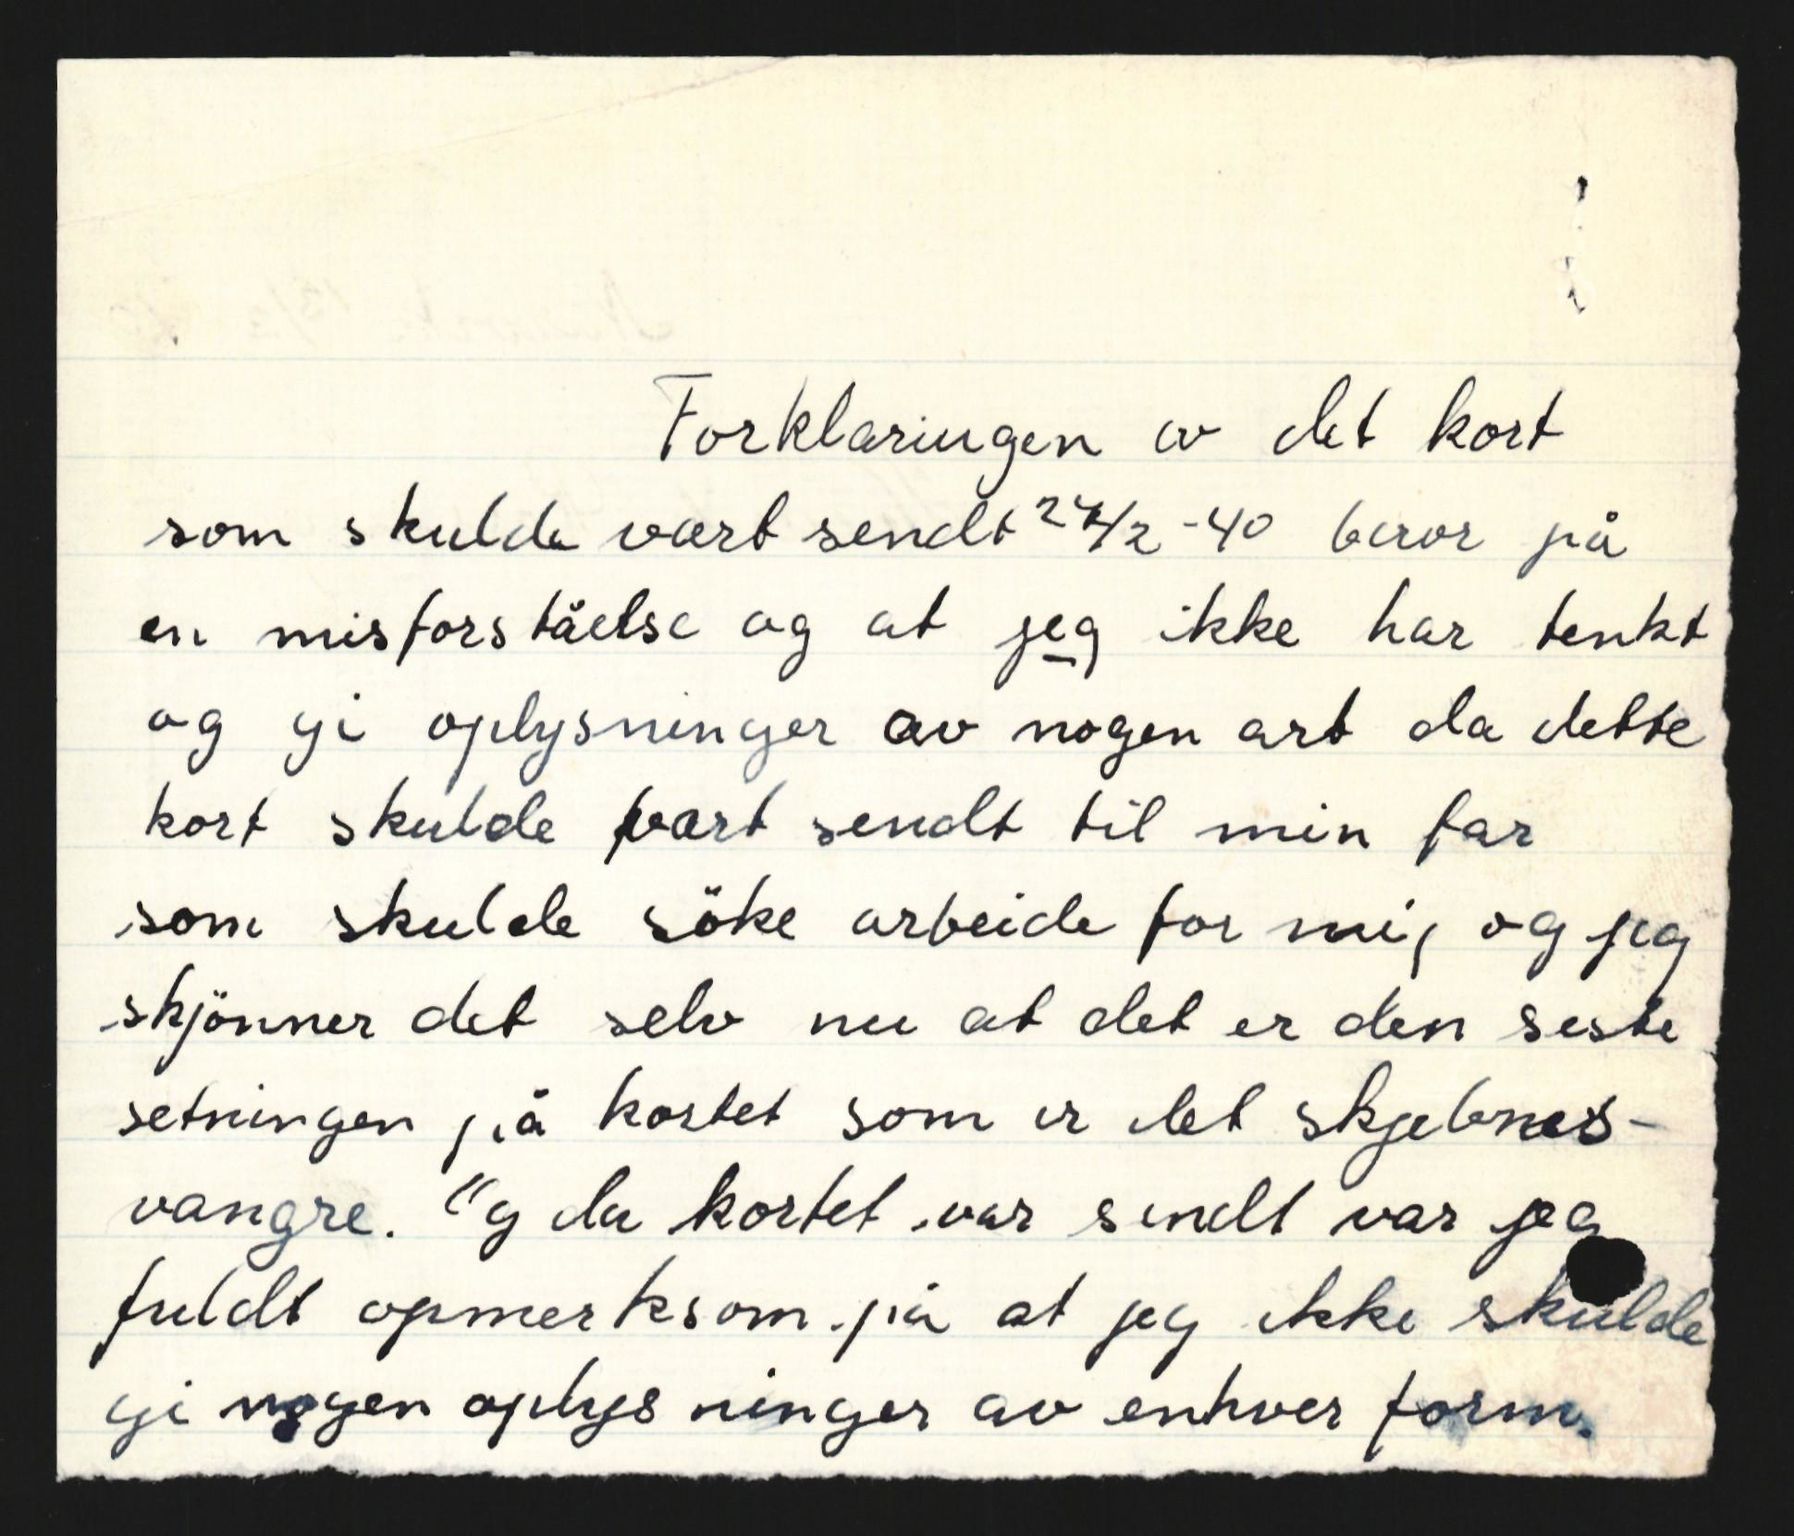 Forklaringen av det kort
som skulde vært sendt 24/2 -40 beror på
en misforståelse og at jeg ikke har tenkt
og gi oplysninger av nogen art da dette
kort skulde vært sendt til min far
som skulde söke arbeide for mig og jeg
skjönner det selv nu at det er den seste
setningen på kortet som er det skjebnes-
vangre. Og da kortet var sendt var jeg
fuldt opmerksom på at jeg ikke skulde
gi nogen oplysninger av enhver form.